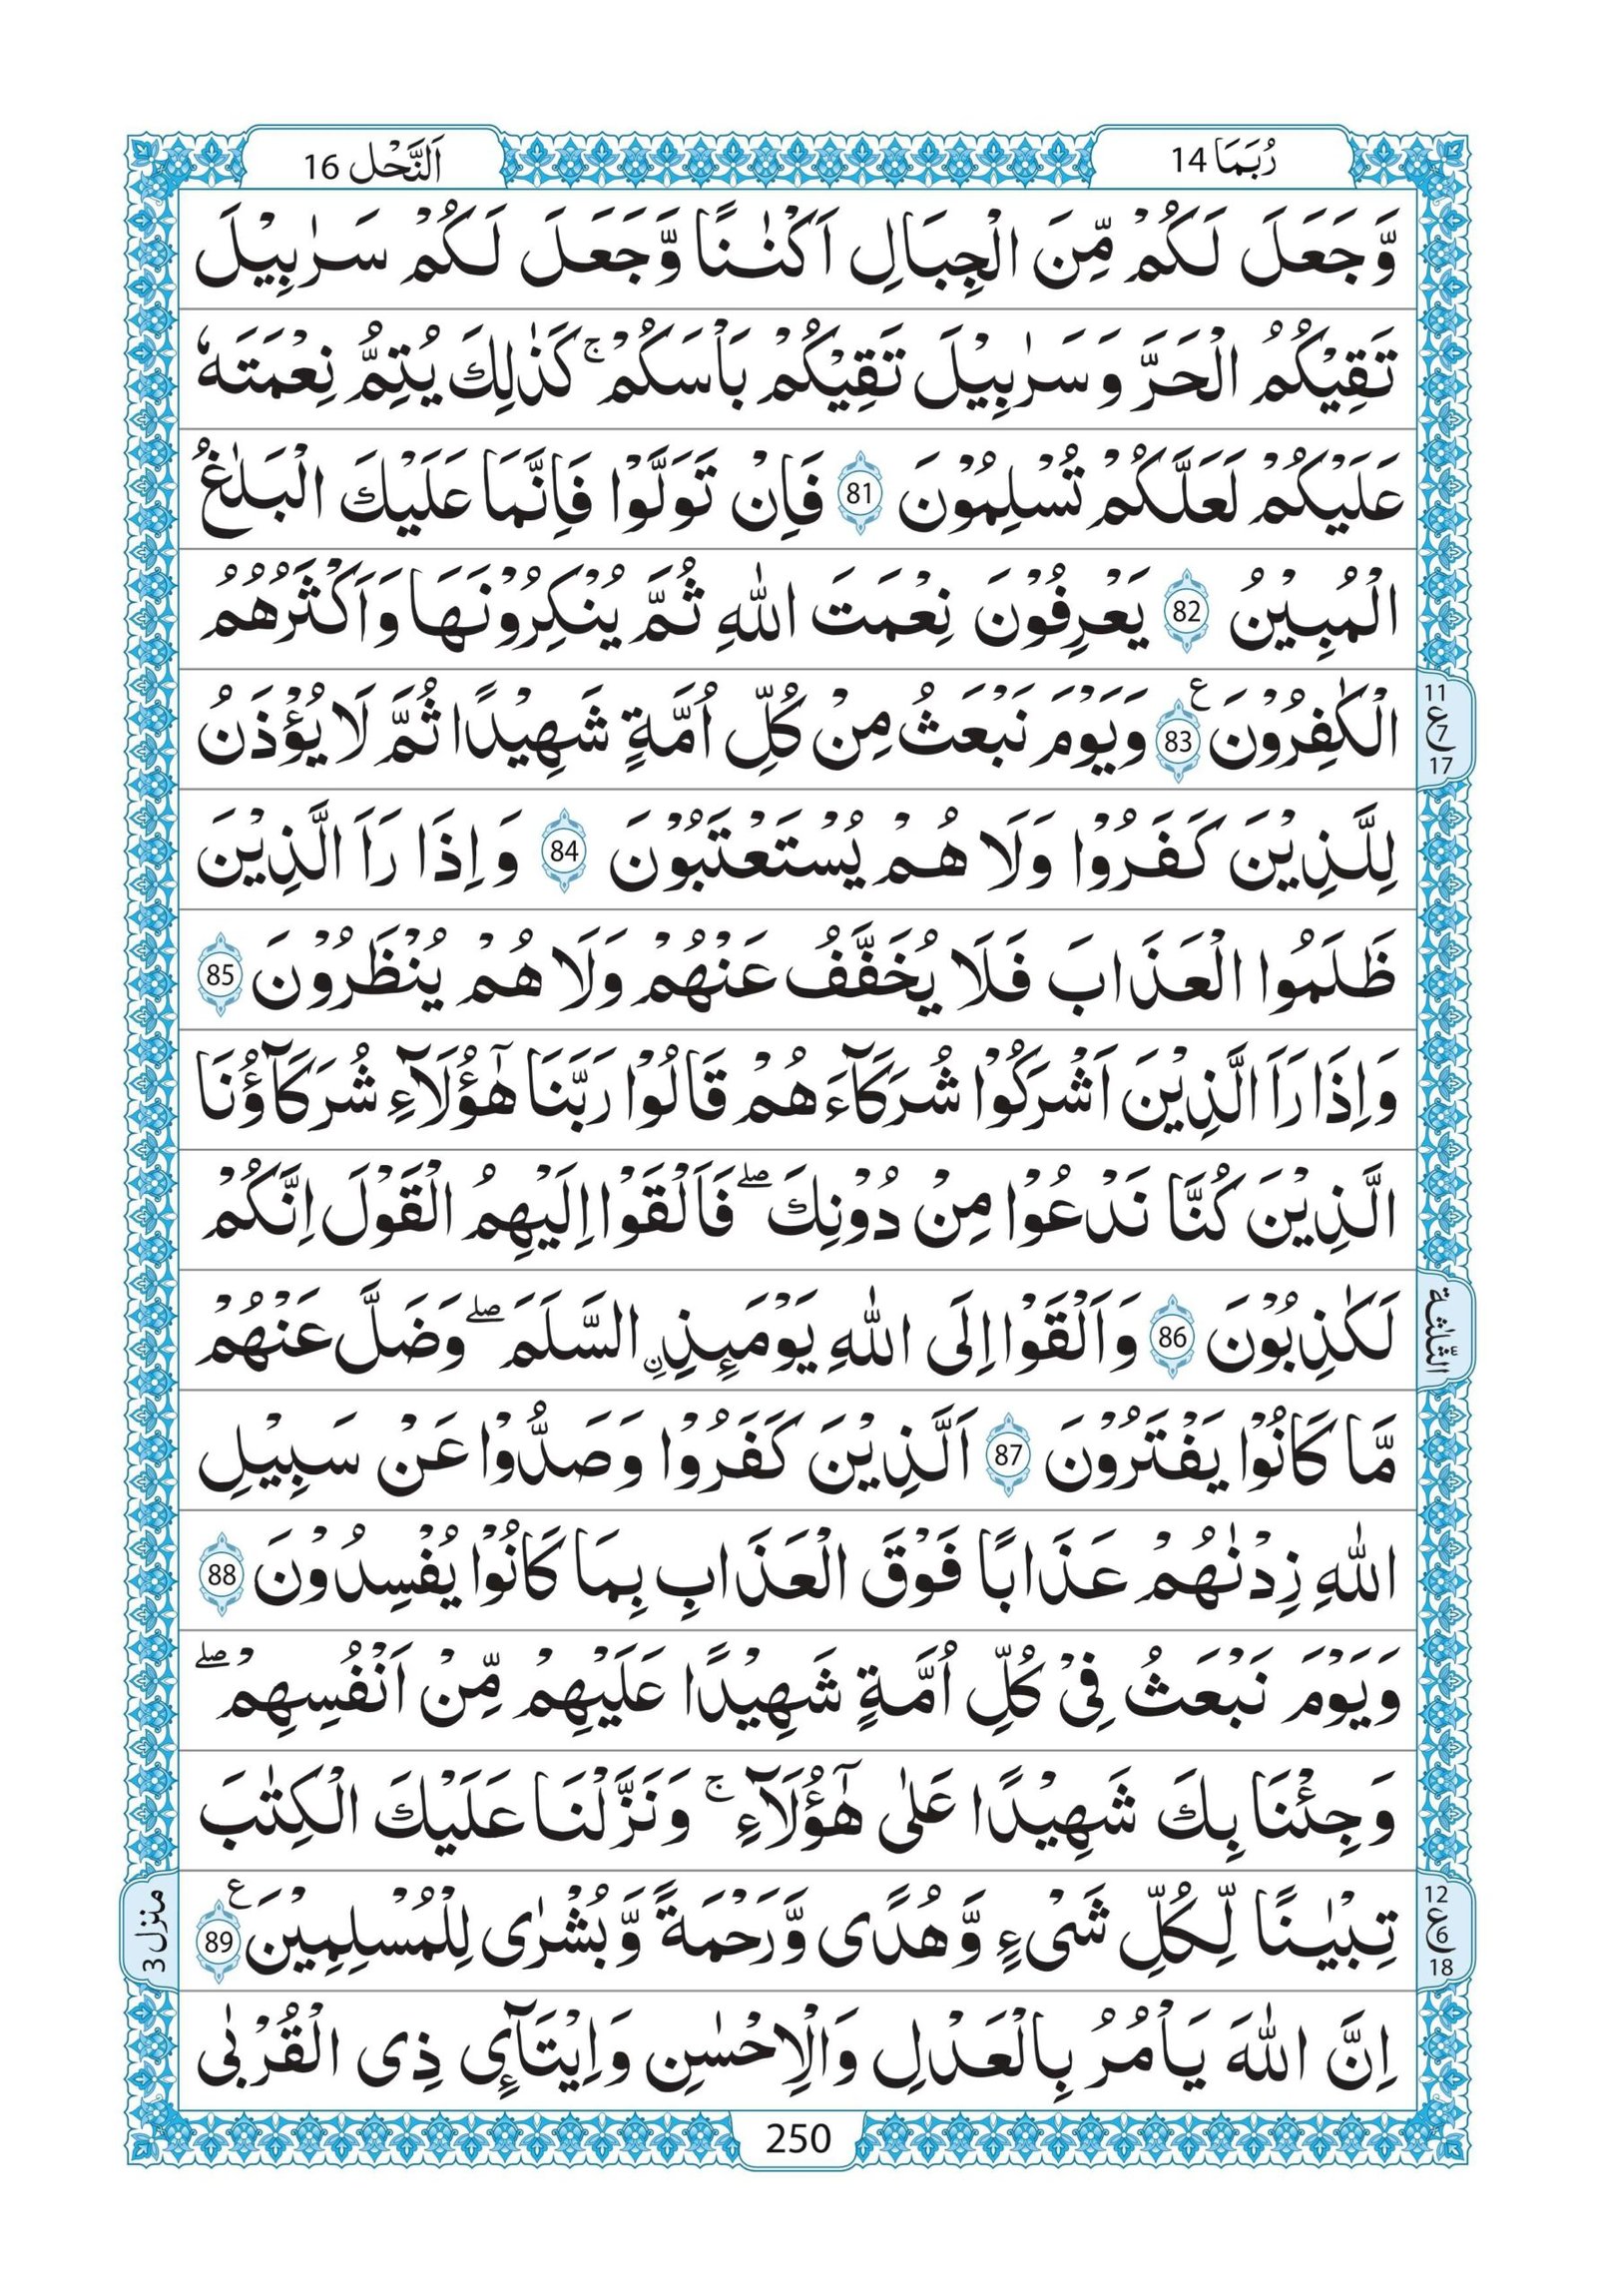 رُبَمَا 14
اَلنَّحْل 16
وَّجَعَلَ لَكُمْ مِّنَ الْجِبَالِ اَكْنٰنًا وَّجَعَلَ لَكُمْ سَرٰبِيْلَ
تَقِيْكُمُ الْحَرَّ وَسَرٰبِيْلَ تَقِيْكُمْ بَاْسَكُمْ ۚ كَذٰلِكَ يُتِمُّ نِعْمَتَهٗ
عَلَيْكُمْ لَعَلَّكُمْ تُسْلِمُوْنَ 81 فَاِنْ تَوَلَّوْا فَاِنَّمَا عَلَيْكَ الْبَلٰغُ
الْمُبِيْنُ 82 يَعْرِفُوْنَ نِعْمَتَ اللّٰهِ ثُمَّ يُنْكِرُوْنَهَا وَاَكْثَرُهُمُ
الْكٰفِرُوْنَ ع 83 وَيَوْمَ نَبْعَثُ مِنْ كُلِّ اُمَّةٍ شَهِيْدًا ثُمَّ لَا يُؤْذَنُ
11
ع 7
17
لِلَّذِيْنَ كَفَرُوْا وَلَا هُمْ يُسْتَعْتَبُوْنَ 84 وَاِذَا رَاَ الَّذِيْنَ
ظَلَمُوا الْعَذَابَ فَلَا يُخَفَّفُ عَنْهُمْ وَلَا هُمْ يُنْظَرُوْنَ 85
وَاِذَا رَاَ الَّذِيْنَ اَشْرَكُوْا شُرَكَآءَهُمْ قَالُوْا رَبَّنَا هٰٓؤُلَآءِ شُرَكَآؤُنَا
الَّذِيْنَ كُنَّا نَدْعُوْا مِنْ دُوْنِكَ ۖ فَاَلْقَوْا اِلَيْهِمُ الْقَوْلَ اِنَّكُمْ
لَكٰذِبُوْنَ 86 وَاَلْقَوْا اِلَى اللّٰهِ يَوْمَىِٕذِ ࣙالسَّلَمَ ۖ وَضَلَّ عَنْهُمْ
الثّلٰثة
مَّا كَانُوْا يَفْتَرُوْنَ 87 اَلَّذِيْنَ كَفَرُوْا وَصَدُّوْا عَنْ سَبِيْلِ
اللّٰهِ زِدْنٰهُمْ عَذَابًا فَوْقَ الْعَذَابِ بِمَا كَانُوْا يُفْسِدُوْنَ 88
وَيَوْمَ نَبْعَثُ فِيْ كُلِّ اُمَّةٍ شَهِيْدًا عَلَيْهِمْ مِّنْ اَنْفُسِهِمْ ۖ
وَجِئْنَا بِكَ شَهِيْدًا عَلٰى هٰٓؤُلَآءِ ۚ وَنَزَّلْنَا عَلَيْكَ الْكِتٰبَ
تِبْيٰنًا لِّكُلِّ شَيْءٍ وَّهُدًى وَّرَحْمَةً وَّبُشْرٰى لِلْمُسْلِمِيْنَ ع 89
12
ع 6
18
منزل 3
اِنَّ اللّٰهَ يَاْمُرُ بِالْعَدْلِ وَالْاِحْسٰنِ وَاِيْتَآئِ ذِى الْقُرْبٰى
250